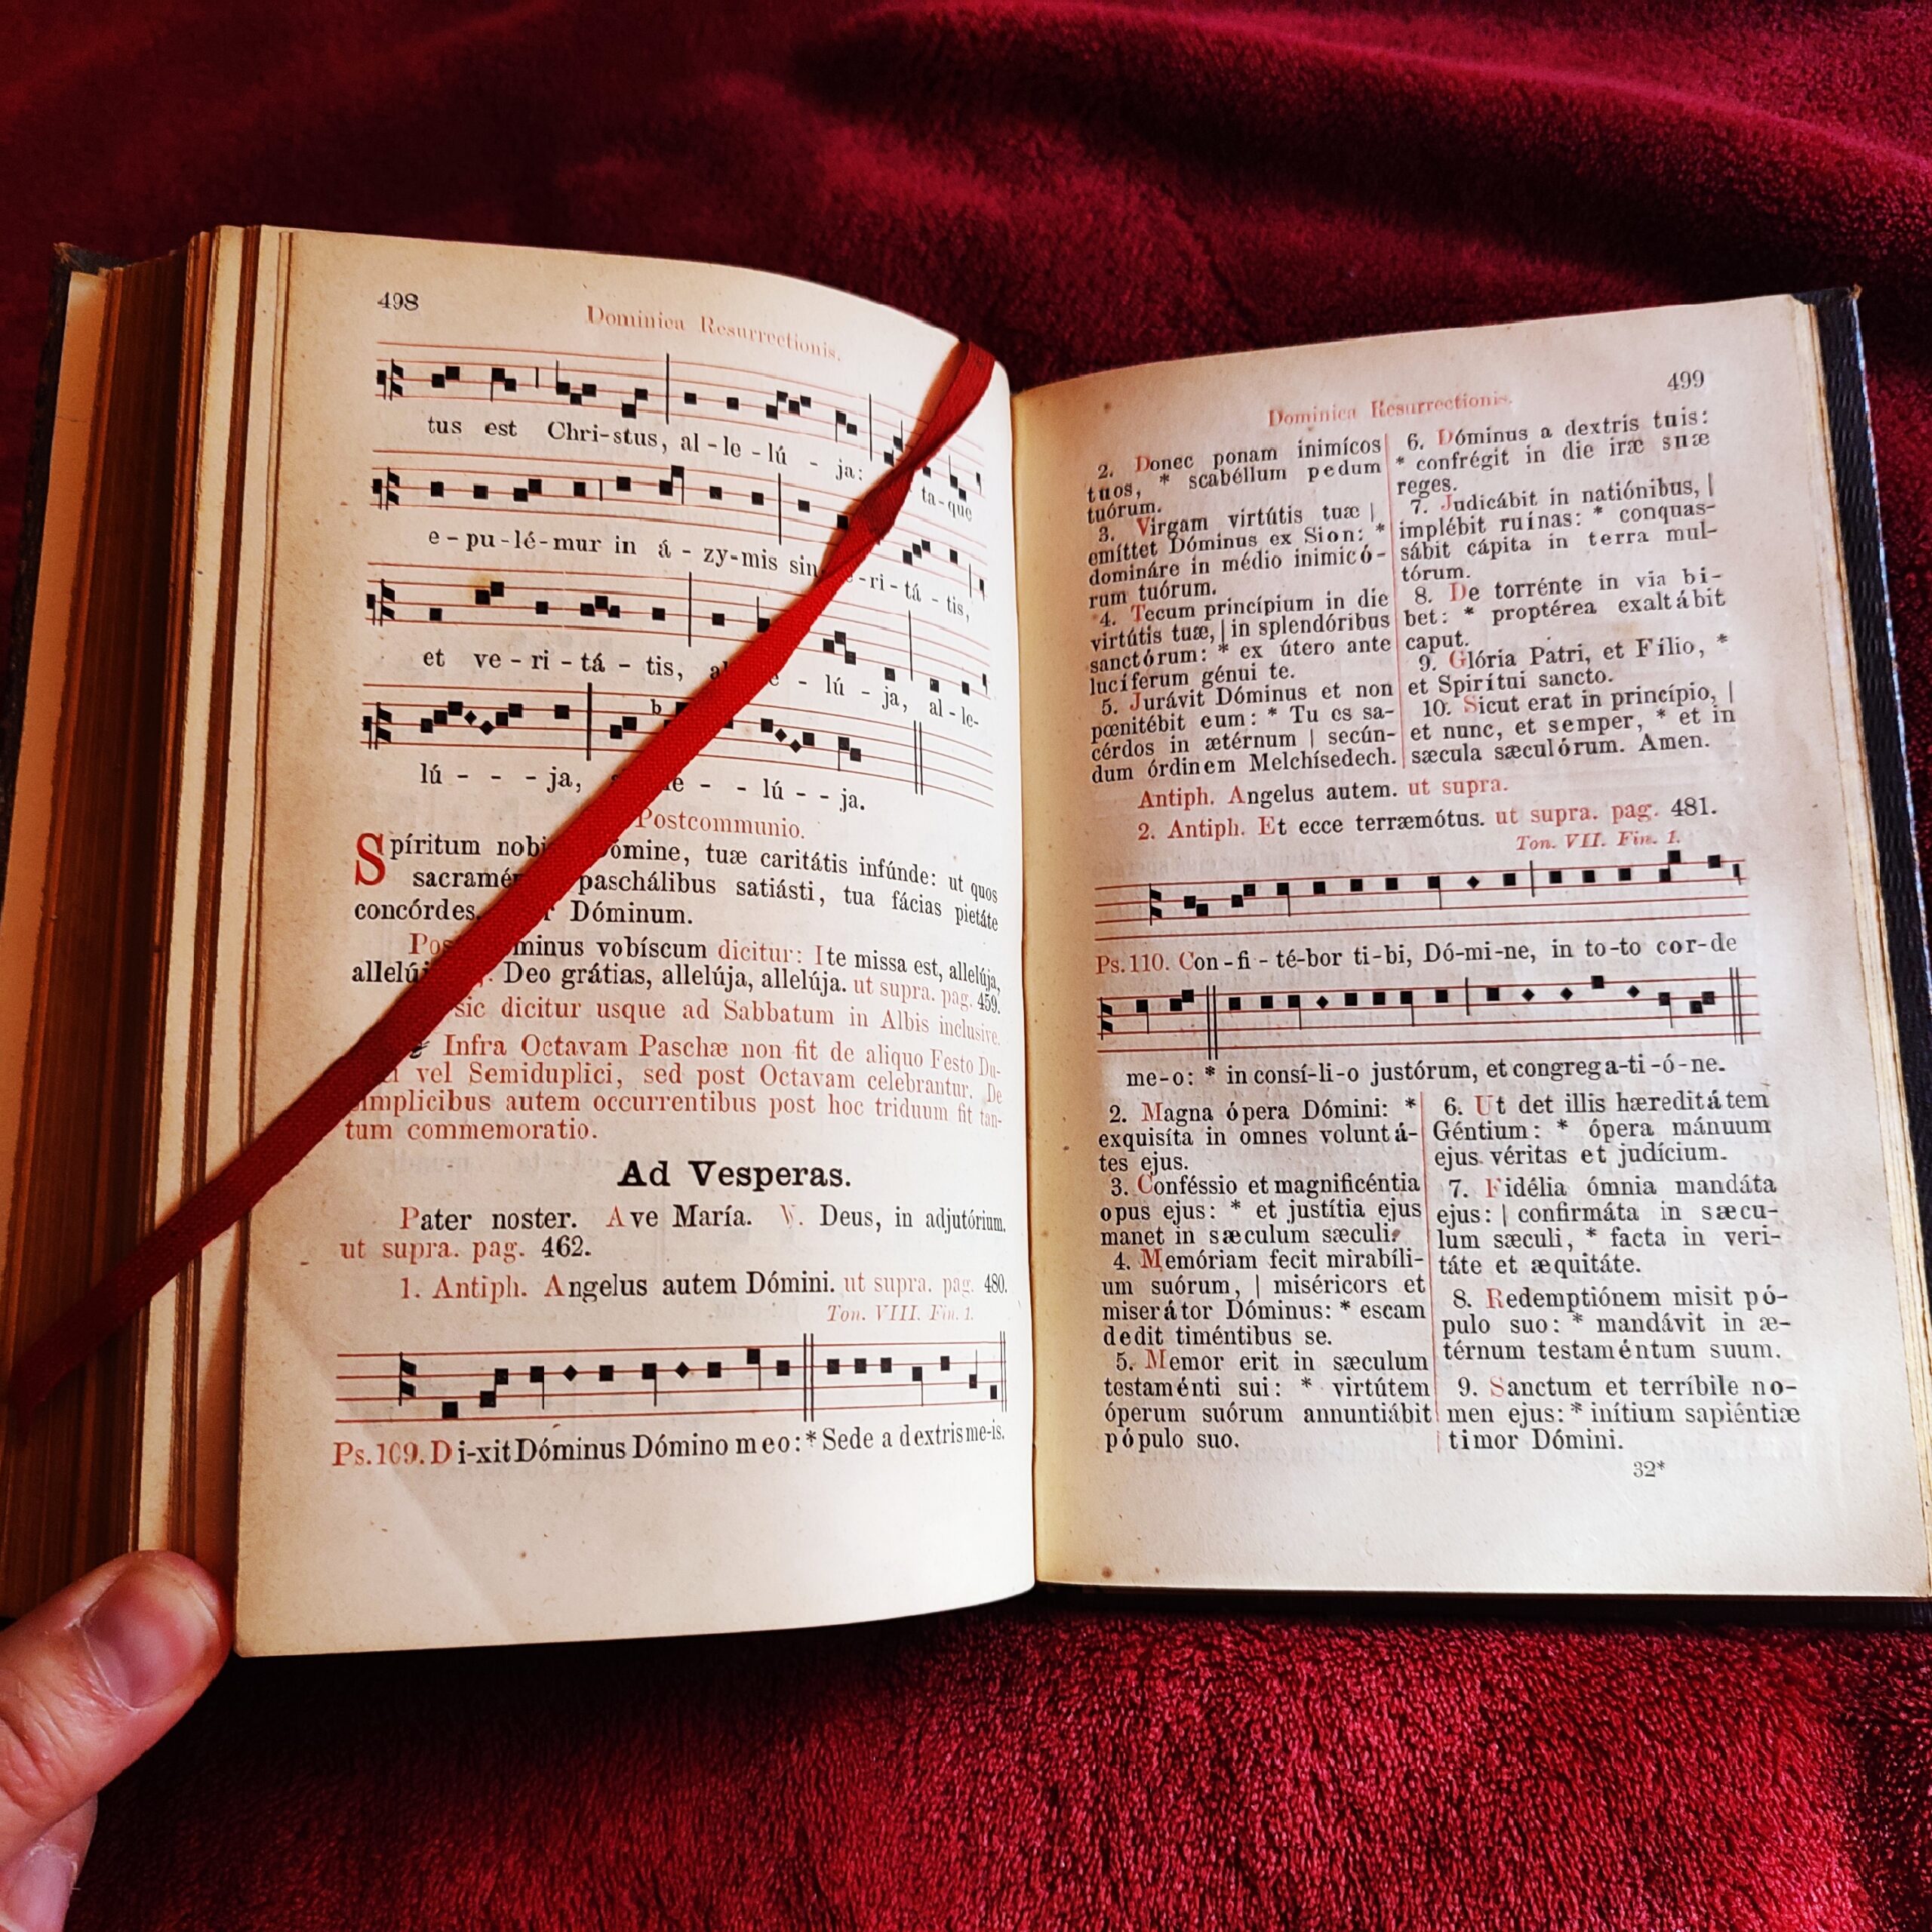 498
Dominica Resurrectionis.
tus est Chri-stus, al-le-lú - ja: ta-que
e-pu-lé-mur in á-zy-mis sin -ri-tá-tis,
et ve-ri-tá-tis, - lú - ja, al-le-
lú - - - ja, - - lú - - ja.
Postcommunio.
Spíritum Dómine, tuæ caritátis infúnde: ut quos
paschálibus satiásti, tua fácias pietáte
concórdes. Dóminum.
vobíscum dicitur: Ite missa est, allelúja,
Deo grátias, allelúja, allelúja. ut supra. pag. 459.
sic dicitur usque ad Sabbatum in Albis inclusive.
Infra Octavam Paschæ non fit de aliquo Festo Du-
vel Semiduplici, sed post Octavam celebrantur. De
implicibus autem occurrentibus post hoc triduum fit tan-
tum commemoratio.
Ad Vesperas.
Pater noster. Ave María. ℣. Deus, in adjutórium.
ut supra. pag. 462.
1. Antiph. Angelus autem Dómini. ut supra. pag. 480.
Ton. VIII. Fin. 1.
Ps. 109. Di-xit Dóminus Dómino meo: * Sede a dextris me-is.
499
Dominica Resurrectionis.
2. Donec ponam inimícos
tuos, * scabéllum pedum
tuórum.
3. Virgam virtútis tuæ |
emíttet Dóminus ex Sion: *
domináre in médio inimicó-
rum tuórum.
4. Tecum princípium in die
virtútis tuæ, | in splendóribus
sanctórum: * ex útero ante
lucíferum génui te.
5. Jurávit Dóminus et non
pœnitébit eum: * Tu es sa-
cérdos in ætérnum | secún-
dum órdinem Melchísedech.
6. Dóminus a dextris tuis:
* confrégit in die iræ suæ
reges.
7. Judicábit in natiónibus, |
implébit ruínas: * conquas-
sábit cápita in terra mul-
tórum.
8. De torrénte in via bi-
bet: * proptérea exaltábit
caput.
9. Glória Patri, et Fílio, *
et Spirítui sancto.
10. Sicut erat in princípio, |
et nunc, et semper, * et in
sæcula sæculórum. Amen.
Antiph. Angelus autem. ut supra.
2. Antiph. Et ecce terræmótus. ut supra. pag. 481.
Ton. VII. Fin. 1.
Ps. 110. Con-fi-té-bor ti-bi, Dó-mi-ne, in to-to cor-de
me-o: * in consí-li-o justórum, et congrega-ti-ó-ne.
2. Magna ópera Dómini: *
exquisíta in omnes voluntá-
tes ejus.
3. Conféssio et magnificéntia
opus ejus: * et justítia ejus
manet in sæculum sæculi.
4. Memóriam fecit mirabíli-
um suórum, | miséricors et
miserátor Dóminus: * escam
dedit timéntibus se.
5. Memor erit in sæculum
testaménti sui: * virtútem
óperum suórum annuntiábit
pópulo suo.
6. Ut det illis hæreditátem
Géntium: * ópera mánuum
ejus véritas et judícium.
7. Fidélia ómnia mandáta
ejus: | confirmáta in sæcu-
lum sæculi, * facta in veri-
táte et æquitáte.
8. Redemptiónem misit pó-
pulo suo: * mandávit in æ-
térnum testaméntum suum.
9. Sanctum et terríbile no-
men ejus: * inítium sapiéntiæ
timor Dómini.
32*